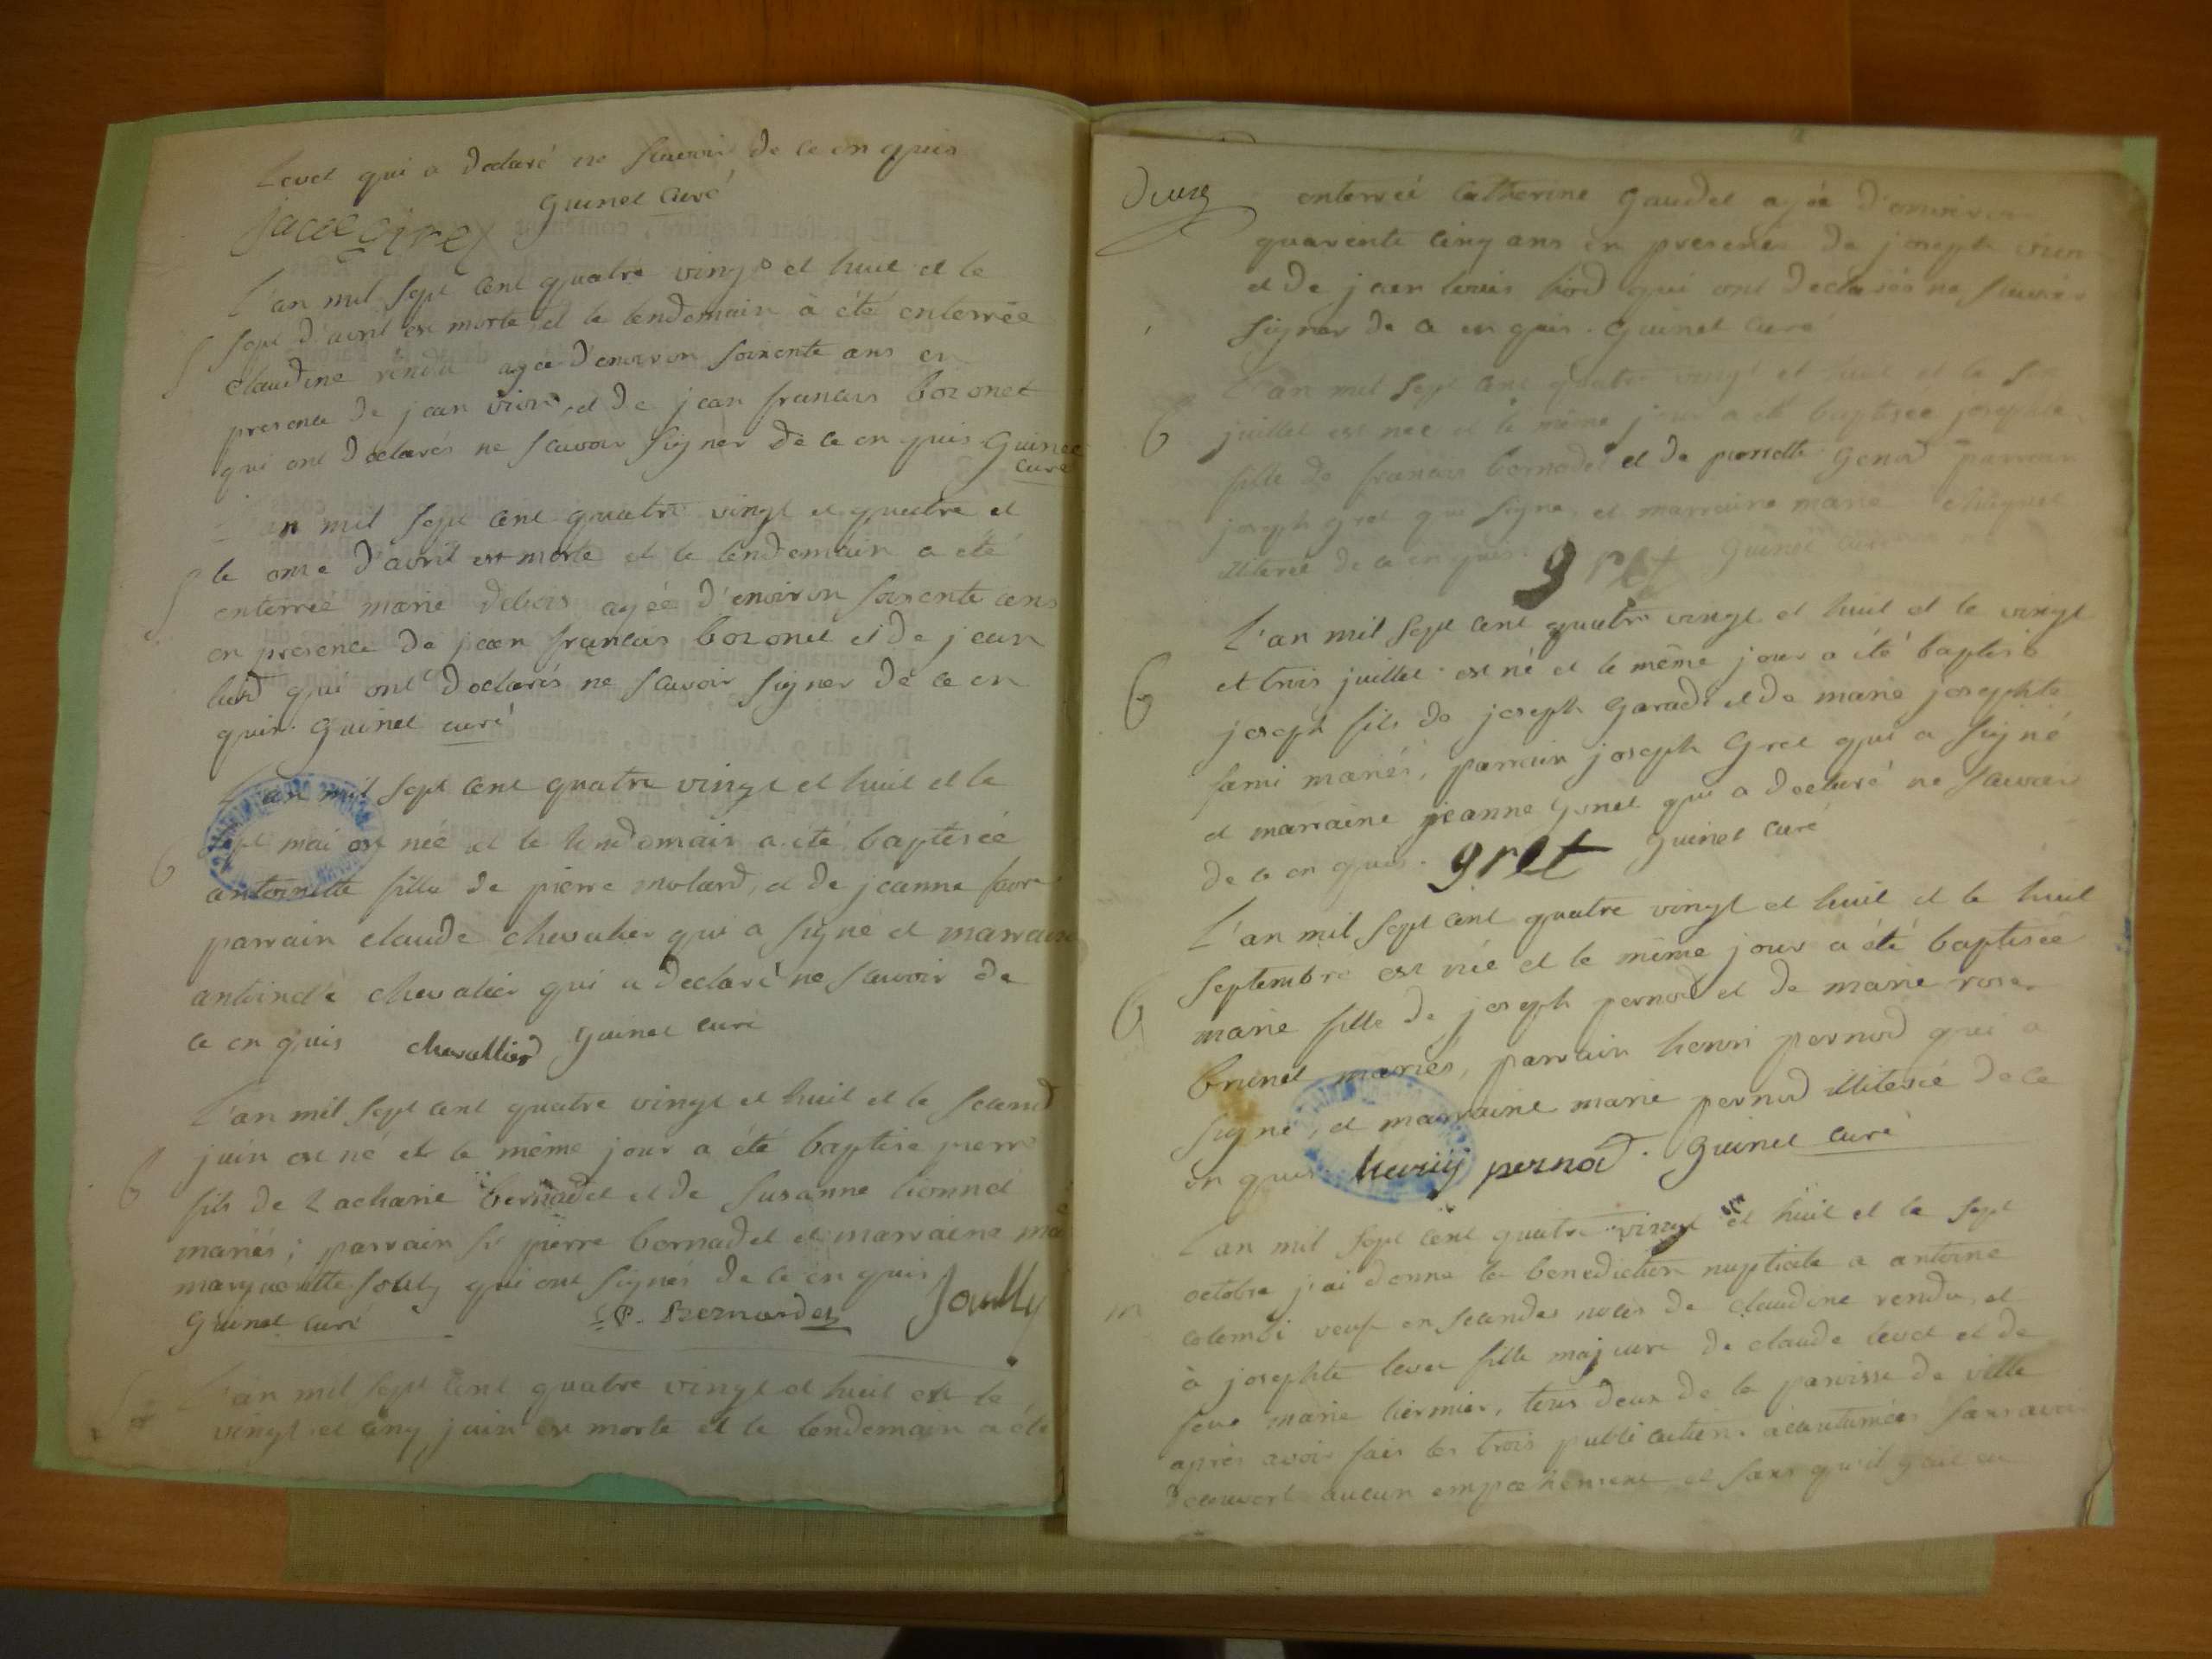 Level qui a declaré ne scavoir de ce enquis
guinet curé
L'an mil sept cent quatre vingt et huit et le
sept d'avril est morte et le lendemain à été enterrée
claudine rendu agée d'environ soixente ans en
presence de jean et de jean francois bozonet
qui ont declarés ne scavoir signer de ce enquis guinet
curé
an mil sept cent quatre vingt et quatre et
le onse d'avril est morte et le lendemain a été
enterrée marie debois agée d'environ soixente ans
en presence de jean francois bozonet et de jean
qui ont declarés ne scavoir signer de ce en
quis. guinet curé
L'an mil sept cent quatre vingt et huit et le
sept mai est née et le lendemain a été baptisée
antoinette fille de pierre molard, et de jeanne favre
parrain claude chevalier qui a signé et marraine
chevalier qui a declaré ne scavoir de
ce enquis chevallier guinet curé
L'an mil sept cent quatre vingt et huit et le second
juin est né et le même jour a été baptisé pierre
fils de zacharie bernadet et de susanne
mariés; parrain pierre bernadet et marraine
margueritte qui ont signés de ce enquis
guinet curé
L'an mil sept cent quatre vingt et huit et le
vingt et cinq juin est morte et le lendemain a été
enterréé catherine gaudet agée d'environ
quarente cinq ans en presence de joseph
et de jean louis qui ont declarés ne scavoir
signer de ce enquis. guinet curé
L'an mil sept cent quatre vingt et huit et le
juillet est née et le même jour a été baptisée josephte
fille de francois bernadet et de pierrette genod parrain
joseph gret qui signe, et marraine marie
illiterée de ce enquis. gret guinet curé
L'an mil sept cent quatre vingt et huit et le vingt
et trois juillet est né et le même jour a été baptisé
joseph fils de joseph garadi et de marie josephte
mariés, parrain joseph gret qui a signé
et marraine jeanne qui a declaré ne scavoir
de ce enquis. gret guinet curé
L'an mil sept cent quatre vingt et huit et le huit
septembre est née et le même jour a été baptisée
marie fille de joseph pernod et de marie rose
brunet mariés, parrain henri pernod qui a
signé, et marraine marie pernod illiterée de ce
enquis henrÿ pernod. guinet curé
L'an mil sept cent quatre vingt et huit et le sept
octobre j'ai donné la benediction nuptiale a antoine
veuf en secondes noces de claudine rendu, et
à josephte level fille majeure de claude level et de
feue marie liermier, tous deux de la paroisse de ville
après avoir fais les trois publications acoutumées sans avoir
decouvert aucun empechement et sans qu'il